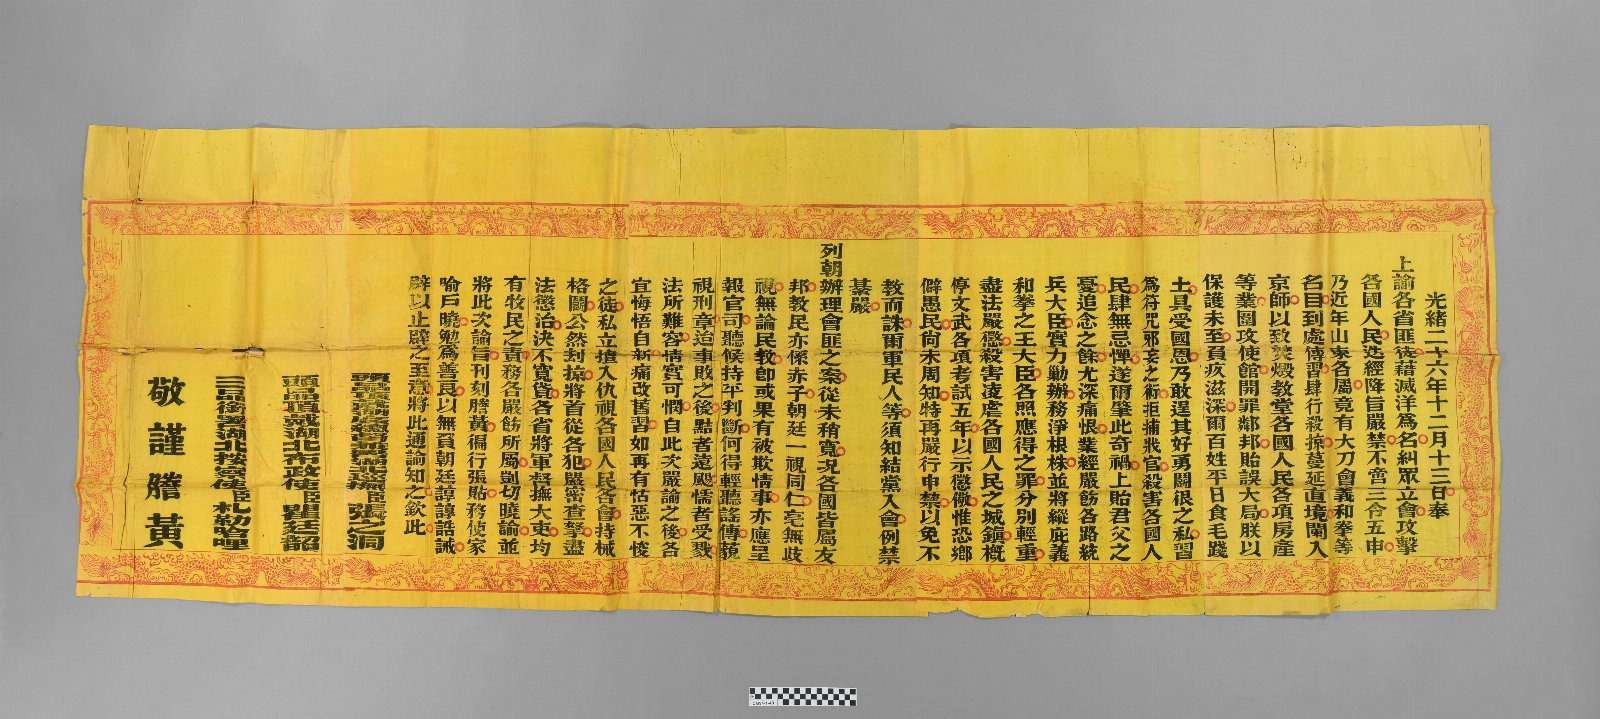 光緒二十六年十二月十三日奉
上諭各省匪徒藉滅洋為名糾眾立會攻擊
各國人民迭經降旨嚴禁不啻三令五申
乃近年山東各屬竟有大刀會義和拳等
名目到處傳習肆行殺掠蔓延直境闌入
京師以致焚燬教堂各國人民各項房產
等業圍攻使館開罪鄰邦貽誤大局朕以
保護未至負疚滋深爾百姓平日食毛踐
土具受國恩乃敢逞其好勇鬪很之私習
為符咒邪妄之術拒捕戕官殺害各國人
民肆無忌憚遂爾肇此奇禍上貽君父之
憂追念之餘尤深痛恨業經嚴飭各路統
兵大臣實力勦辦務淨根株並將縱庇義
和拳之王大臣各照應得之罪分別輕重
盡法嚴懲殺害凌虐各國人民之城鎮概
停文武各項考試五年以示懲儆惟恐鄉
僻愚民尚未周知特再嚴行申禁以免不
教而誅爾軍民人等須知結黨入會例禁
綦嚴
列朝辦理會匪之案從未稍寬況各國皆屬友
邦教民亦係赤子朝廷一視同仁毫無歧
視無論民教卽或果有被欺情事亦應呈
報官司聽候持平判斷何得輕聽謠傳藐
視刑章迨事敗之後黠者遠颺懦者受戮
法所難容情實可憫自此次嚴諭之後各
宜悔悟自新痛改舊習如再有怙惡不悛
之徒私立擅入仇視各國人民各會持械
格鬪公然刦掠將首從各犯嚴密查拏盡
法懲治決不寬貸各省將軍督撫大吏均
有牧民之責務各嚴飭所屬剴切曉諭並
將此次諭旨刊刻謄黃徧行張貼務使家
喻戶曉勉為善良以無負朝廷諄諄誥誡
辟以止辟之至意將此通諭知之欽此
頭品頂戴湖廣總督兼署湖北巡撫臣張之洞
頭品頂戴湖北布政使臣瞿廷韶
三品銜署湖北按察使臣札勒哈哩
敬謹謄黃